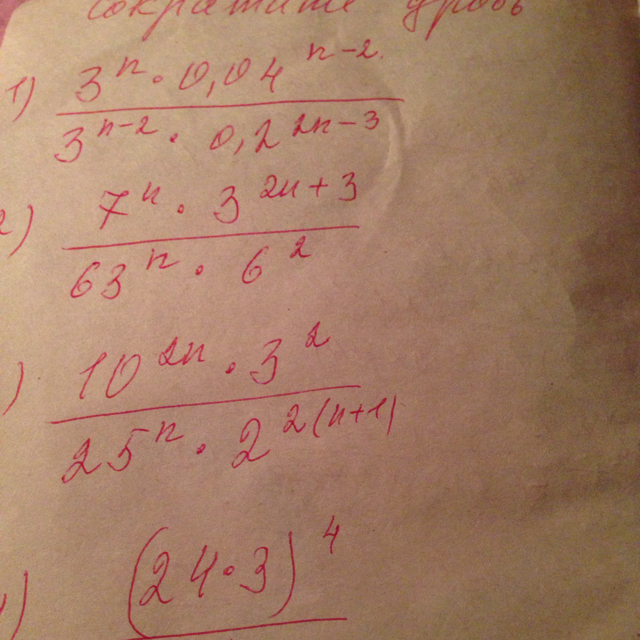 сократите дробь
1) 3^n · 0,04^(n-2)
3^(n-2) · 0,2^(2n-3)
2) 7^n · 3^(2n+3)
63^n · 6^2
) 10^(2n) · 3^2
25^n · 2^(2(n+1))
) (24·3)^4